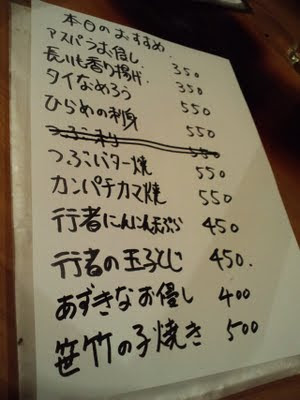 本日のおすすめ
アスパラお信し 350
長いも香り揚げ 350
タイなめろう 550
ひらめの刺身 550
つぶ刺 550
つぶバター焼 550
カンパチカマ焼 550
行者にんにく天ぷら 450
行者の玉子とじ 450.
あずきなお優し 400
笹竹の子焼き 500